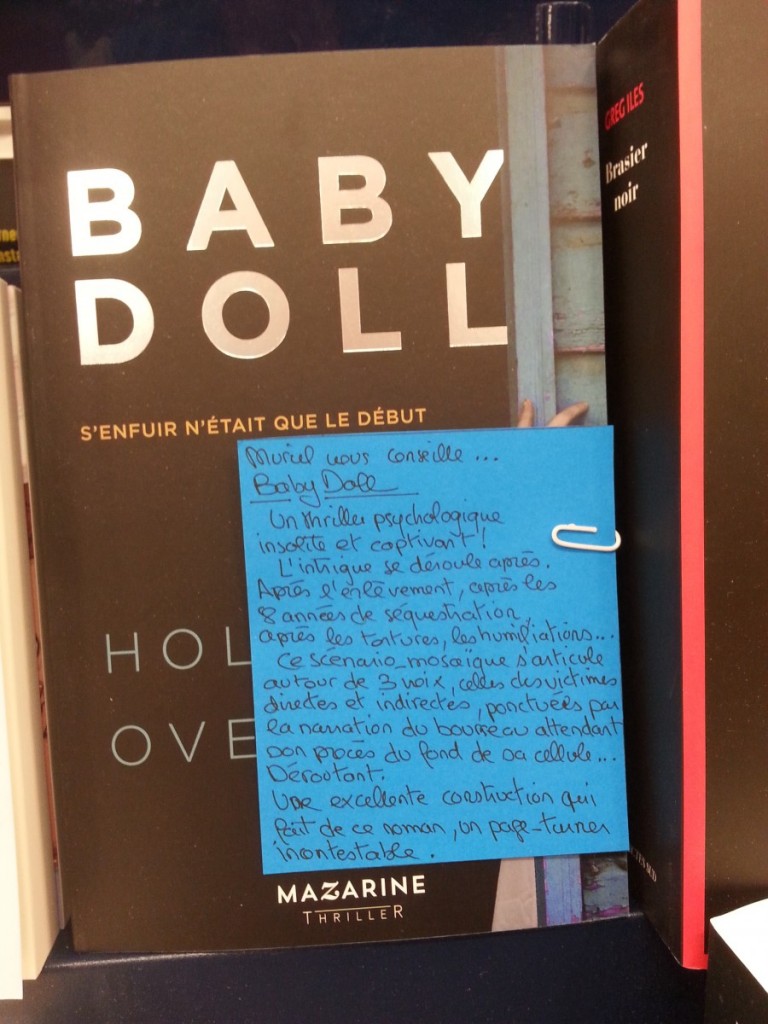 BABY
DOLL
S'ENFUIR N'ÉTAIT QUE LE DÉBUT
HOL
OVE
Muriel vous conseille...
Baby Doll
Un thriller psychologique
insolite et captivant !
L'intrigue se déroule après.
Après l'enlèvement, après les
8 années de séquestration,
après les tortures, les humiliations...
Ce scénario-mosaïque s'articule
autour de 3 voix, celles des victimes
directes et indirectes, ponctuées par
la narration du bourreau attendant
son procès du fond de sa cellule...
Déroutant.
Une excellente construction qui
fait de ce roman, un page-turner
incontestable.
MAZARINE
THRILLER
GREG ILES
Brasier
noir